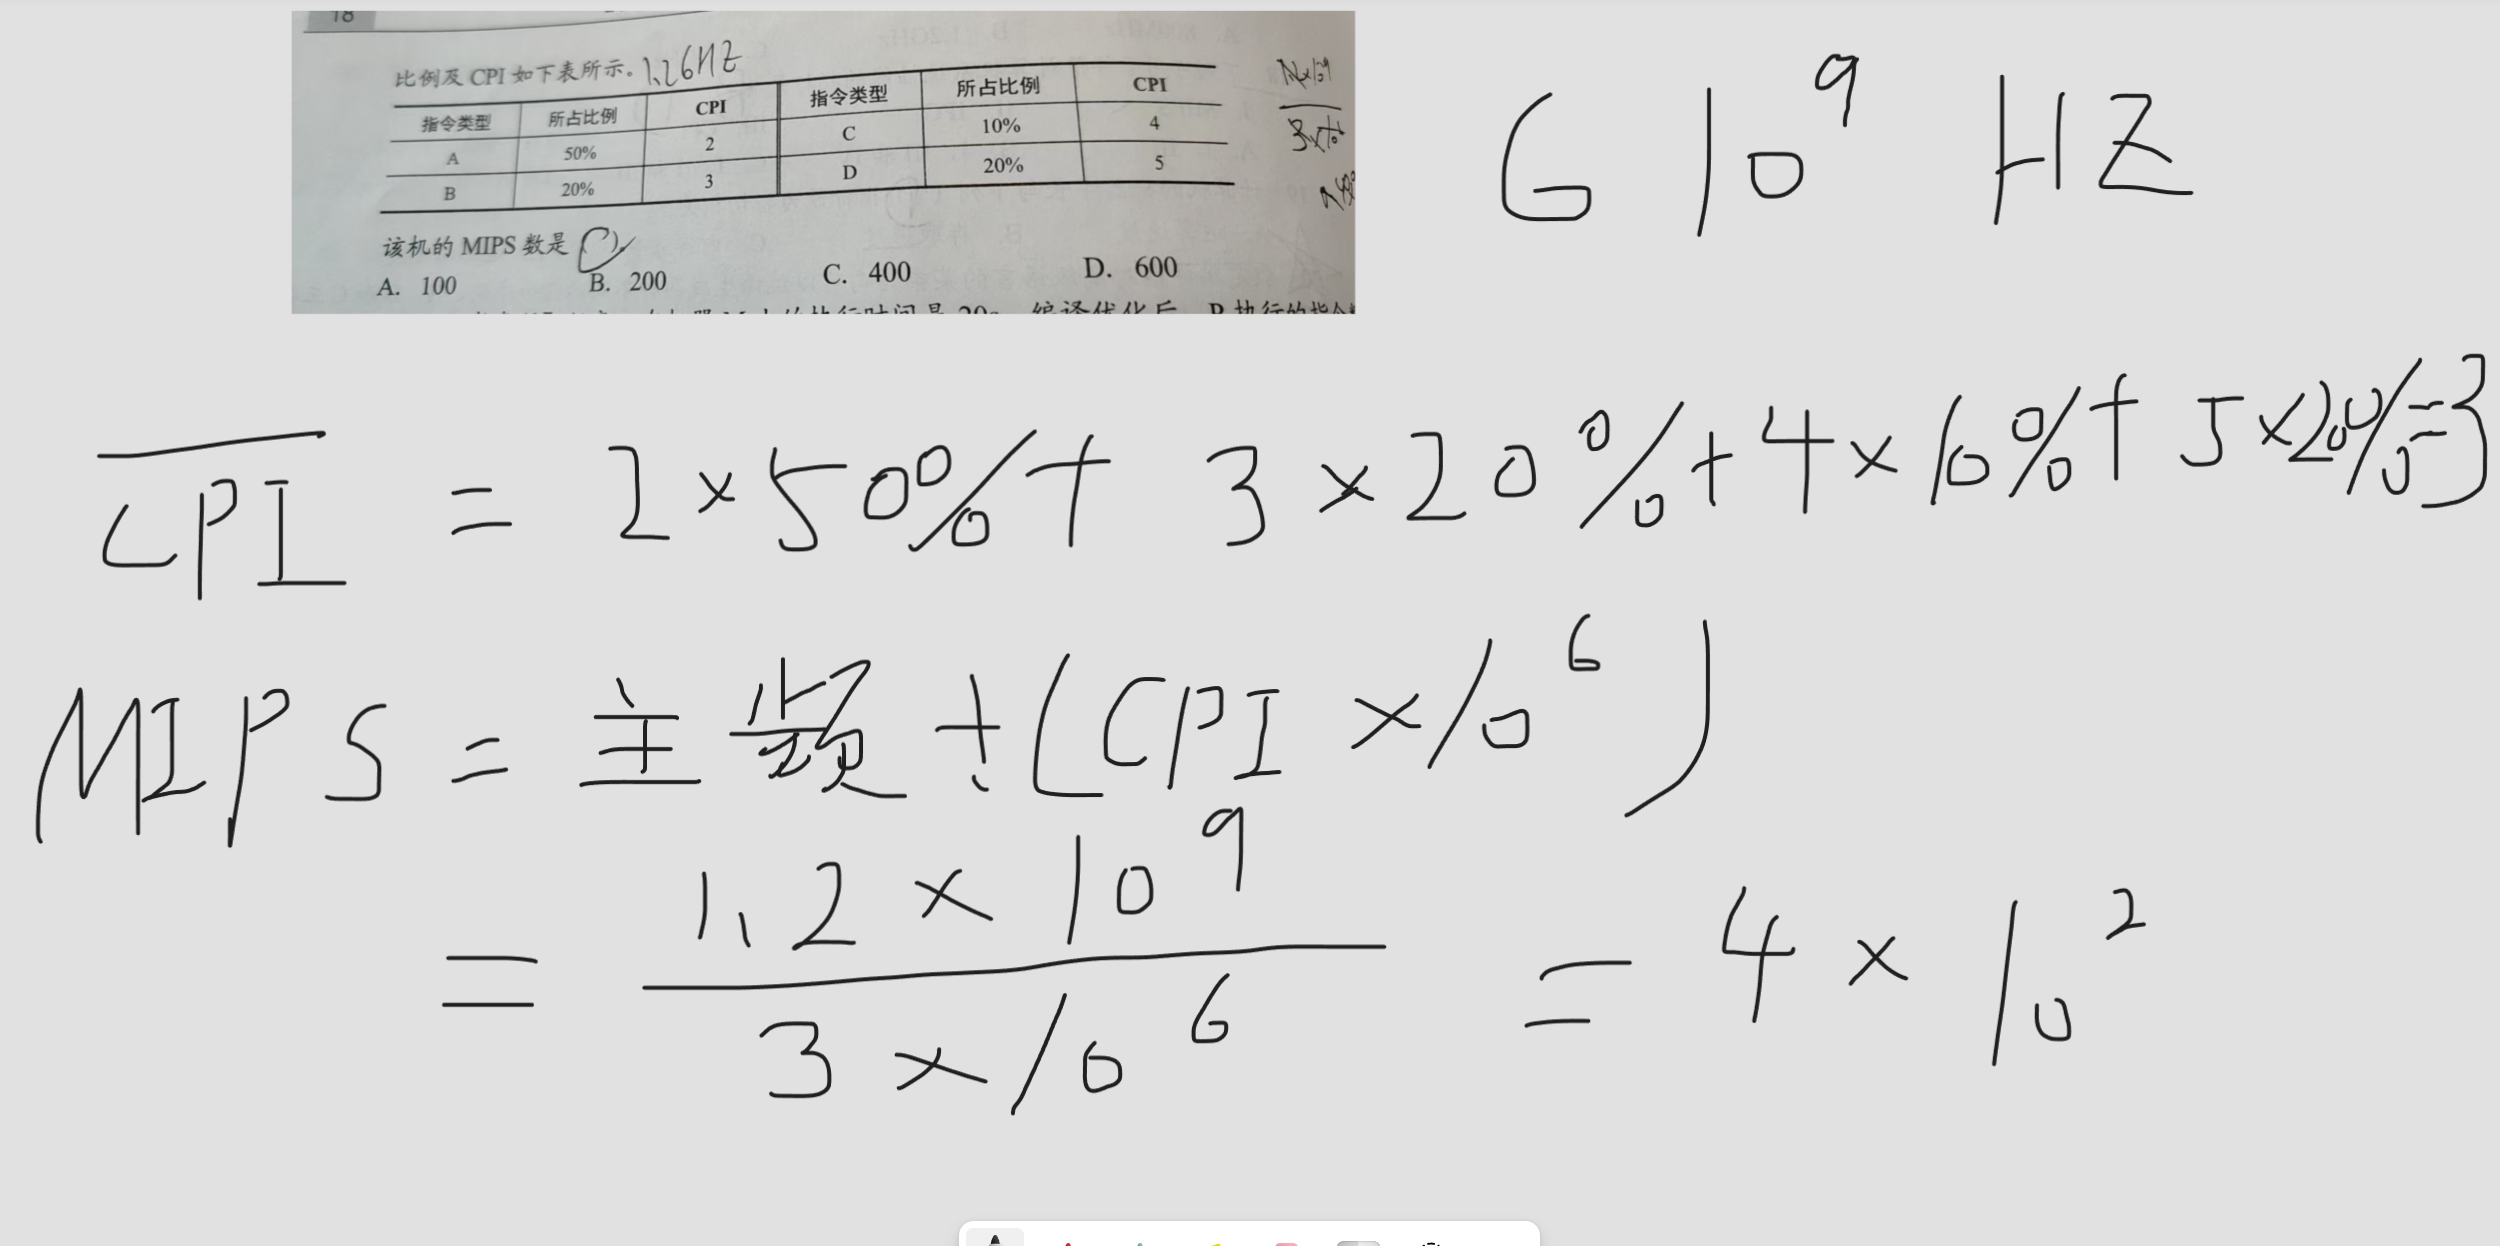 18
比例及 CPI 如下表所示。1.2GHZ
指令类型 所占比例 CPI 指令类型 所占比例 CPI
A 50% 2 C 10% 4
B 20% 3 D 20% 5
该机的 MIPS 数是 ( )。
A. 100 B. 200 C. 400 D. 600
G 10^9 HZ
CPI = 2×50%+ 3×20%+4×10%+5×20%=3
MIPS = 主频÷(CPI×10^6)
= 1.2×10^9
3×10^6
= 4×10^2